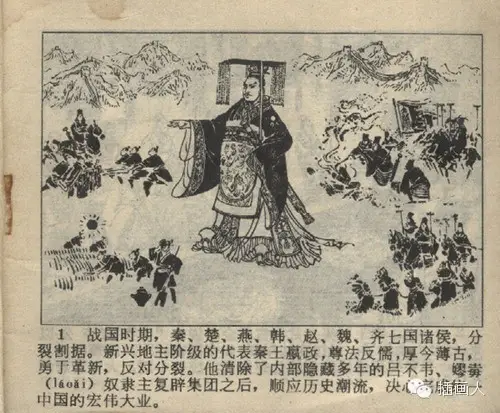 1 战国时期，秦、楚、燕、韩、赵、魏、齐七国诸侯，分
裂割据。新兴地主阶级的代表秦王嬴政，尊法反儒，厚今薄古，
勇于革新，反对分裂。他清除了内部隐藏多年的吕不韦、嫪毐
(làoǎi) 奴隶主复辟集团之后，顺应历史潮流，决心
中国的宏伟大业。
插画人